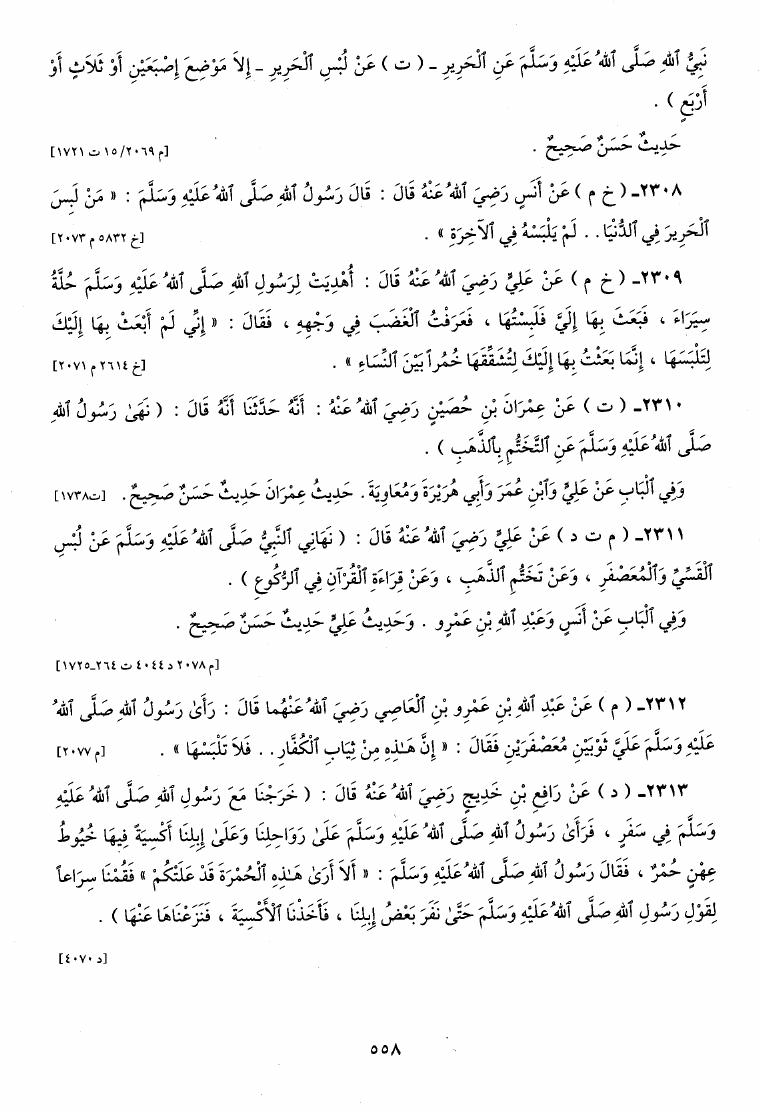 نَبِيُّ ٱللهِ صَلَّى ٱللهُ عَلَيْهِ وَسَلَّمَ عَنِ ٱلْحَرِيرِ - ( ت ) عَنْ لُبْسِ ٱلْحَرِيرِ - إِلاَّ مَوْضِعَ إِصْبَعَيْنِ أَوْ ثَلاَثٍ أَوْ
أَرْبَعٍ ) .
حَدِيثٌ حَسَنٌ صَحِيحٌ . [م ٢٠٦٩/ ١٥ ت ١٧٢١]
٢٣٠٨ـ ( خ م ) عَنْ أَنَسٍ رَضِيَ ٱللهُ عَنْهُ قَالَ : قَالَ رَسُولُ ٱللهِ صَلَّى ٱللهُ عَلَيْهِ وَسَلَّمَ : « مَنْ لَبِسَ
ٱلْحَرِيرَ فِي ٱلدُّنْيَا . . لَمْ يَلْبَسْهُ فِي ٱلآخِرَةِ » . [خ ٥٨٣٢ م ٢٠٧٣]
٢٣٠٩ـ ( خ م ) عَنْ عَلِيٍّ رَضِيَ ٱللهُ عَنْهُ قَالَ : أُهْدِيَتْ لِرَسُولِ ٱللهِ صَلَّى ٱللهُ عَلَيْهِ وَسَلَّمَ حُلَّةُ
سِيَرَاءَ ، فَبَعَثَ بِهَا إِلَيَّ فَلَبِسْتُهَا ، فَعَرَفْتُ ٱلْغَضَبَ فِي وَجْهِهِ ، فَقَالَ : « إِنِّي لَمْ أَبْعَثْ بِهَا إِلَيْكَ
لِتَلْبَسَهَا ، إِنَّمَا بَعَثْتُ بِهَا إِلَيْكَ لِتُشَقِّقَهَا خُمُراً بَيْنَ ٱلنِّسَاءِ » . [خ ٢٦١٤ م ٢٠٧١]
٢٣١٠ـ ( ت ) عَنْ عِمْرَانَ بْنِ حُصَيْنٍ رَضِيَ ٱللهُ عَنْهُ : أَنَّهُ حَدَّثَنَا أَنَّهُ قَالَ : ( نَهَىٰ رَسُولُ ٱللهِ
صَلَّى ٱللهُ عَلَيْهِ وَسَلَّمَ عَنِ ٱلتَّخَتُّمِ بِٱلذَّهَبِ ) .
وَفِي ٱلْبَابِ عَنْ عَلِيٍّ وَٱبْنِ عُمَرَ وَأَبِي هُرَيْرَةَ وَمُعَاوِيَةَ . حَدِيثُ عِمْرَانَ حَدِيثٌ حَسَنٌ صَحِيحٌ . [ت١٧٣٨]
٢٣١١ـ ( م ت د ) عَنْ عَلِيٍّ رَضِيَ ٱللهُ عَنْهُ قَالَ : ( نَهَانِي ٱلنَّبِيُّ صَلَّى ٱللهُ عَلَيْهِ وَسَلَّمَ عَنْ لُبْسِ
ٱلْقَسِّيِّ وَٱلْمُعَصْفَرِ ، وَعَنْ تَخَتُّمِ ٱلذَّهَبِ ، وَعَنْ قِرَاءَةِ ٱلْقُرْآنِ فِي ٱلرُّكُوعِ ) .
وَفِي ٱلْبَابِ عَنْ أَنَسٍ وَعَبْدِ ٱللهِ بْنِ عَمْرٍو . وَحَدِيثُ عَلِيٍّ حَدِيثٌ حَسَنٌ صَحِيحٌ .
[م ٢٠٧٨ د ٤٠٤٤ ت ٢٦٤ـ١٧٢٥]
٢٣١٢ـ ( م ) عَنْ عَبْدِ ٱللهِ بْنِ عَمْرِو بْنِ ٱلْعَاصِي رَضِيَ ٱللهُ عَنْهُمَا قَالَ : رَأَىٰ رَسُولُ ٱللهِ صَلَّى ٱللهُ
عَلَيْهِ وَسَلَّمَ عَلَيَّ ثَوْبَيْنِ مُعَصْفَرَيْنِ فَقَالَ : « إِنَّ هَـٰذِهِ مِنْ ثِيَابِ ٱلْكُفَّارِ . . فَلاَ تَلْبَسْهَا » . [م ٢٠٧٧]
٢٣١٣ـ ( د ) عَنْ رَافِعِ بْنِ خَدِيجٍ رَضِيَ ٱللهُ عَنْهُ قَالَ : ( خَرَجْنَا مَعَ رَسُولِ ٱللهِ صَلَّى ٱللهُ عَلَيْهِ
وَسَلَّمَ فِي سَفَرٍ ، فَرَأَىٰ رَسُولُ ٱللهِ صَلَّى ٱللهُ عَلَيْهِ وَسَلَّمَ عَلَىٰ رَوَاحِلِنَا وَعَلَىٰ إِبِلِنَا أَكْسِيَةً فِيهَا خُيُوطُ
عِهْنٍ حُمْرٌ ، فَقَالَ رَسُولُ ٱللهِ صَلَّى ٱللهُ عَلَيْهِ وَسَلَّمَ : « أَلاَ أَرَىٰ هَـٰذِهِ ٱلْحُمْرَةَ قَدْ عَلَتْكُمْ » فَقُمْنَا سِرَاعاً
لِقَوْلِ رَسُولِ ٱللهِ صَلَّى ٱللهُ عَلَيْهِ وَسَلَّمَ حَتَّىٰ نَفَرَ بَعْضُ إِبِلِنَا ، فَأَخَذْنَا ٱلأَكْسِيَةَ ، فَنَزَعْنَاهَا عَنْهَا ) .
[د ٤٠٧٠]
٥٥٨